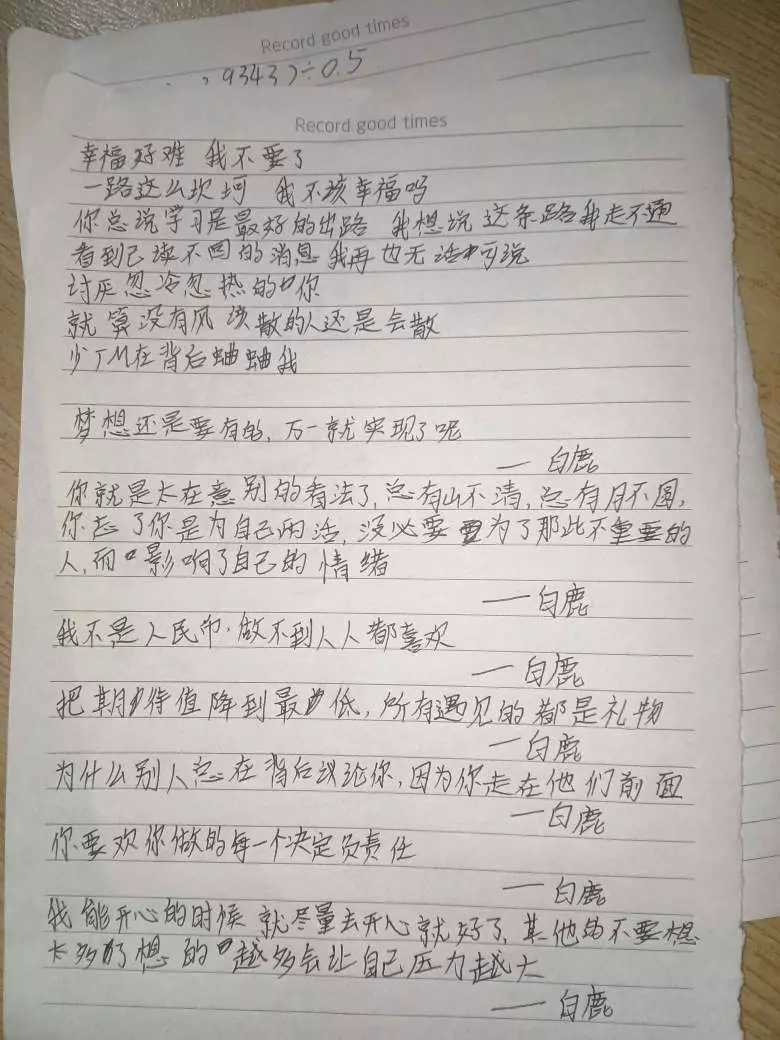 Record good times
9343)÷0.5
Record good times
幸福好难 我不要了
一路这么坎坷 我不该幸福吗
你总说学习是最好的出路 我想说 这条路我走不通
看到已读不回的消息 我再也无话可说
讨厌忽冷忽热的你
就算没有风 该散的人还是会散
少TM在背后蛐蛐我
梦想还是要有的,万一就实现了呢
——白鹿
你就是太在意别的看法了,总有山不清,总有月不圆,
你忘了你是为自己而活,没必要为了那些不重要的
人,而影响了自己的情绪
——白鹿
我不是人民币.做不到人人都喜欢
——白鹿
把期待值降到最低,所有遇见的都是礼物
——白鹿
为什么别人总在背后议论你,因为你走在他们前面
——白鹿
你要欢你做的每一个决定负责任
——白鹿
我能开心的时候就尽量去开心就好了,其他的不要想
太多了想的越多会让自己压力越大
——白鹿